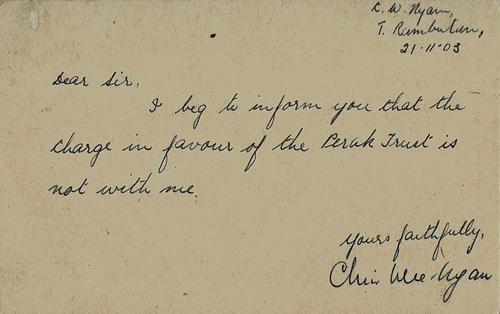 T. Rambutan,
21-11-03
Dear Sir,
I beg to inform you that the
charge in favour of the Perak Trust is
not with me.
Yours faithfully,